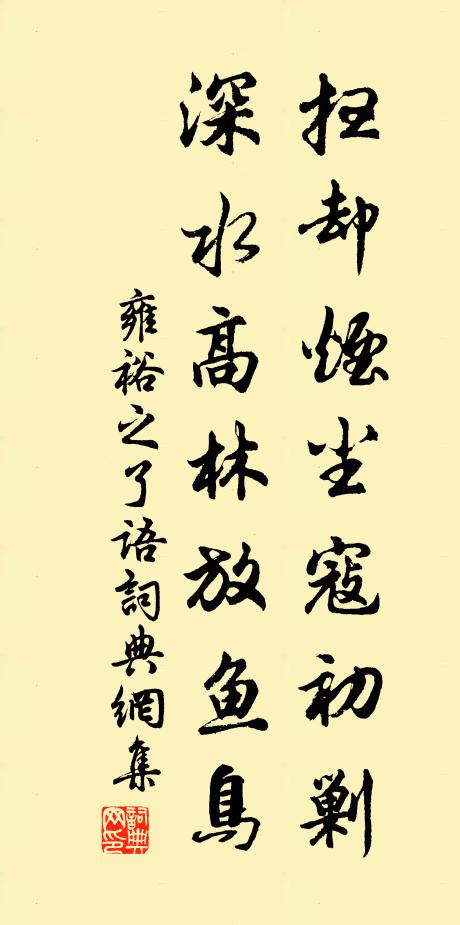 扫却煙尘寇初剿
深水高林放鱼鳥
雍裕之了语詞典網集
詞典网印